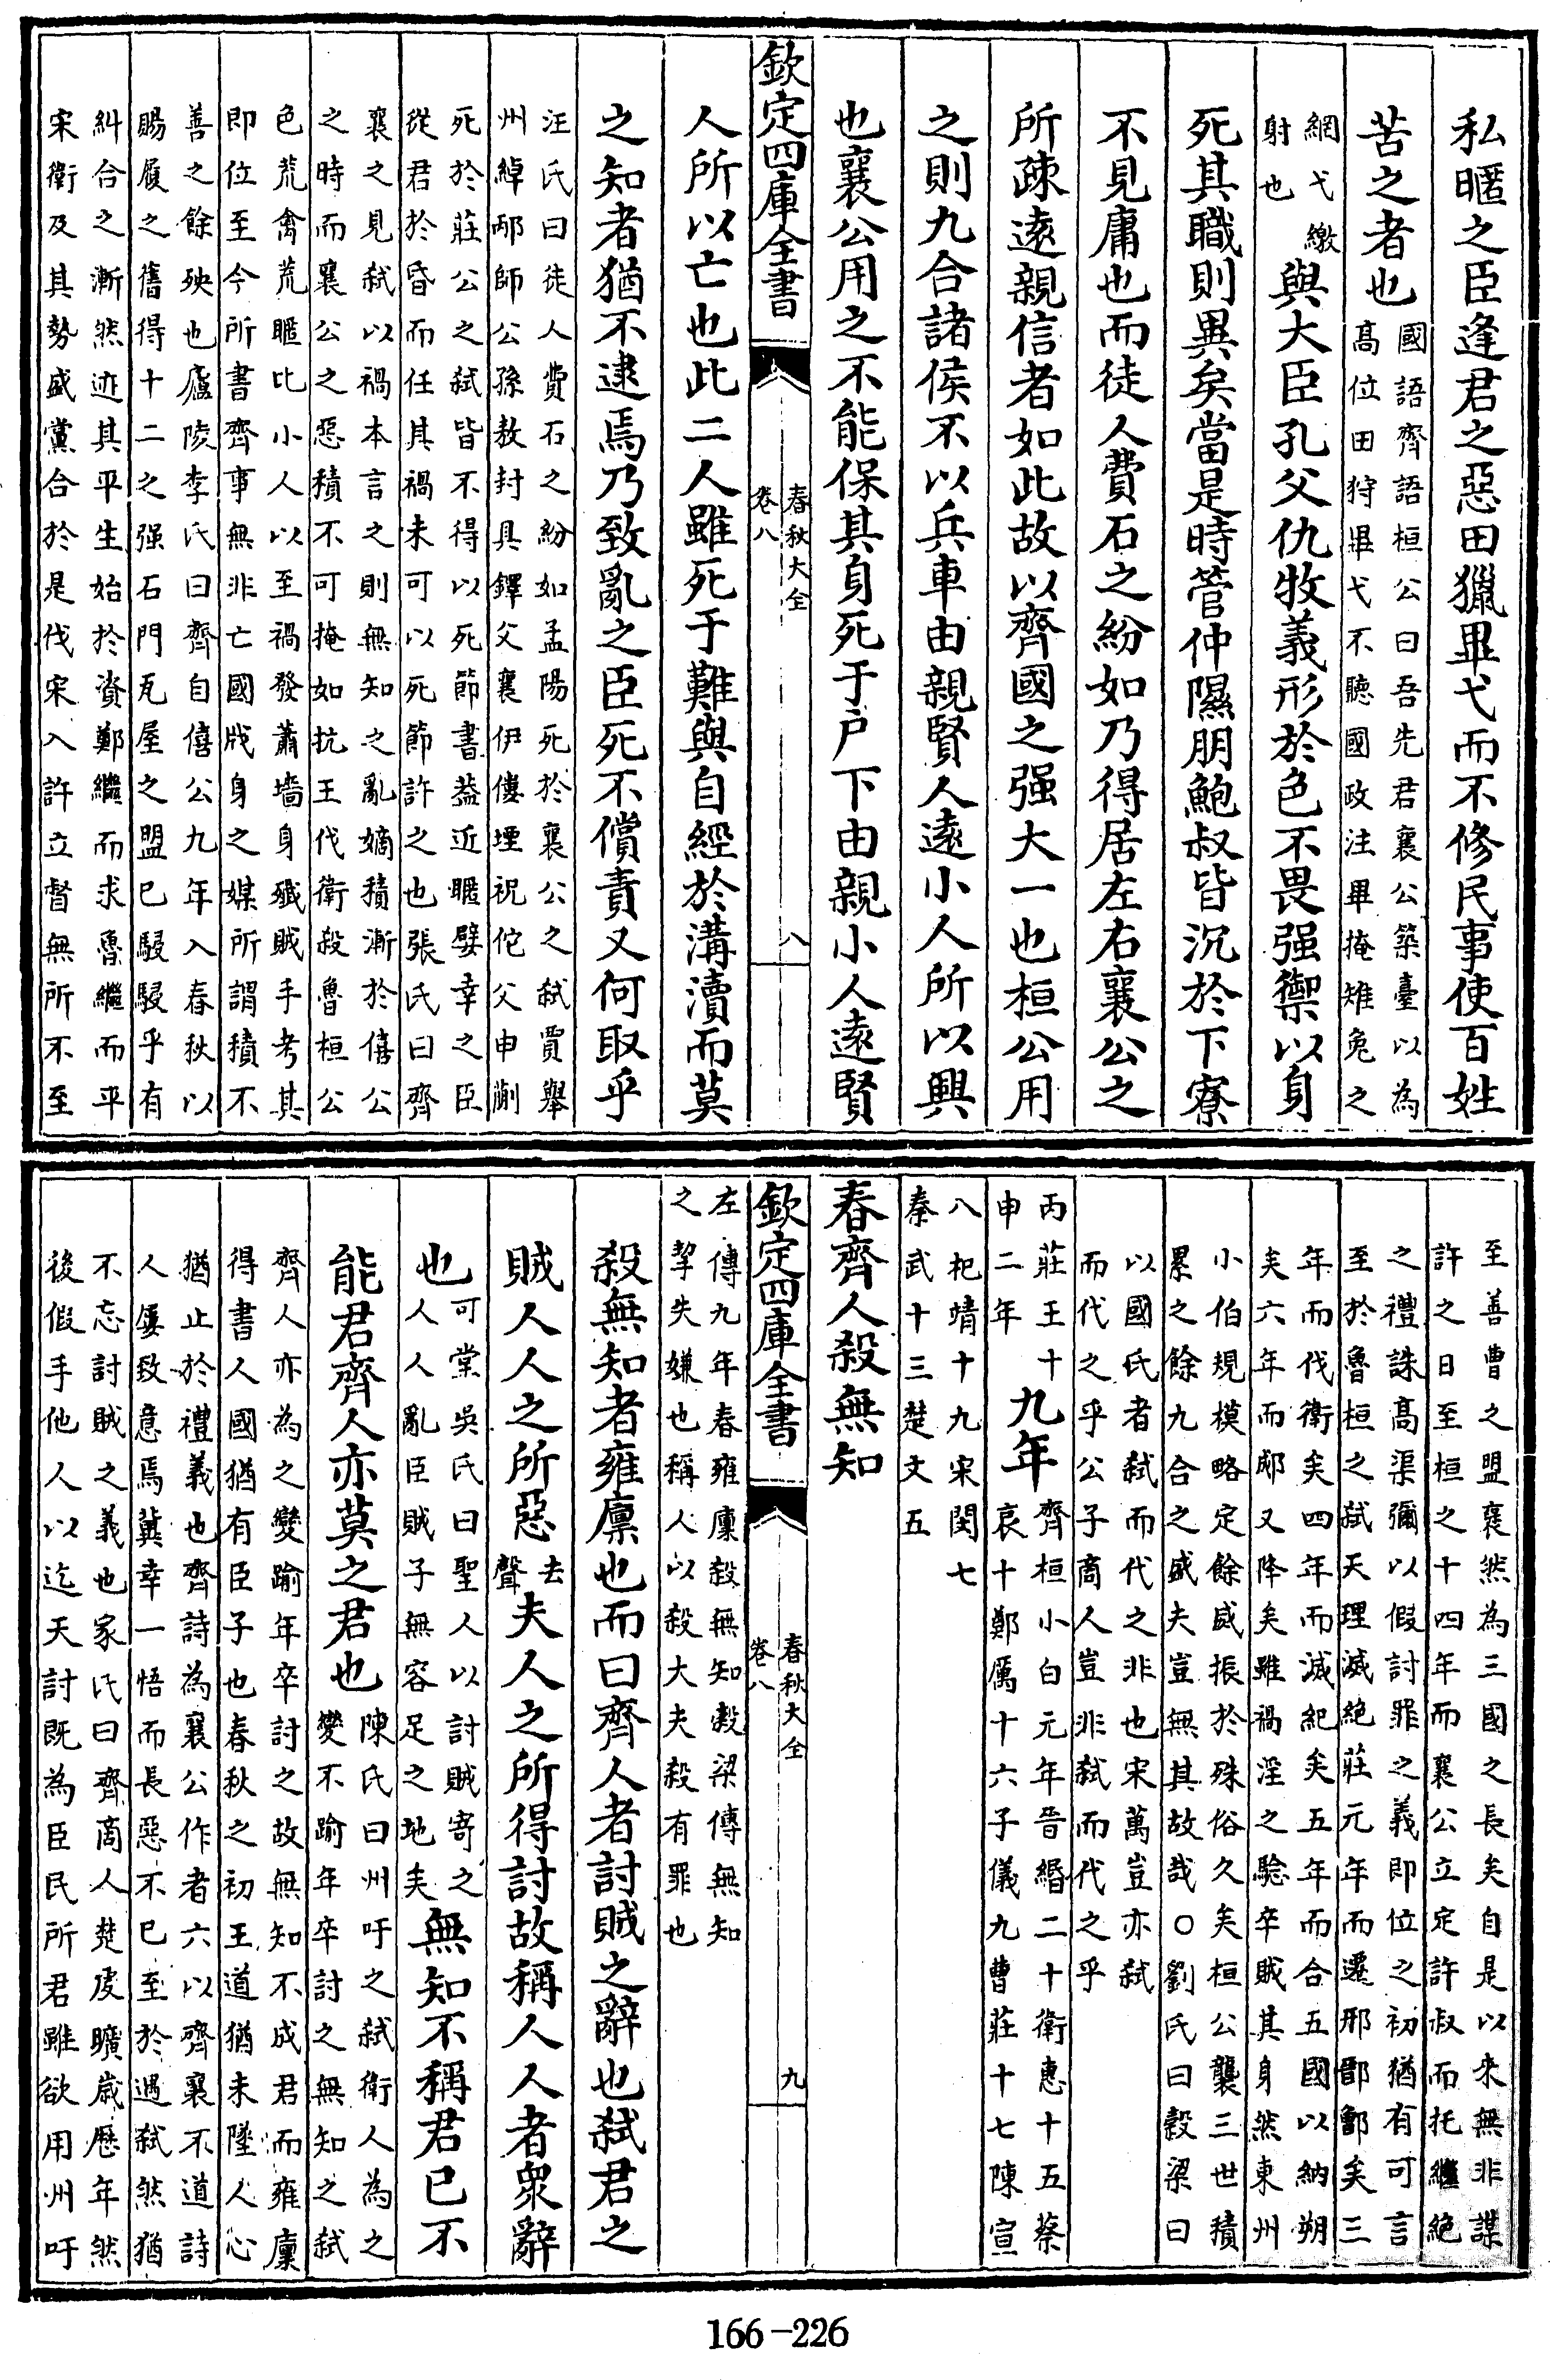 私暱之臣逢君之惡田獵畢弋而不修民事使百姓
苦之者也
國語齊語桓公曰吾先君襄公築臺以為
高位田狩畢弋不聽國政注畢掩雉兔之
網弋繳
射也
與大臣孔父仇牧義形於色不畏强禦以身
死其職則異矣當是時管仲隰朋鮑叔皆沉於下寮
不見庸也而徒人費石之紛如乃得居左右襄公之
所疎遠親信者如此故以齊國之强大一也桓公用
之則九合諸侯不以兵車由親賢人遠小人所以興
也襄公用之不能保其身死于户下由親小人遠賢
欽定四庫全書
春秋大全
卷八
八
人所以亡也此二人雖死于難與自經於溝瀆而莫
之知者猶不逮焉乃致亂之臣死不償責又何取乎
汪氏曰徒人費石之紛如孟陽死於襄公之弑賈舉
州綽邴師公孫敖封具鐸父襄伊僂堙祝佗父申蒯
死於莊公之弑皆不得以死節書葢近暱嬖幸之臣
從君於昏而任其禍未可以死節許之也張氏曰齊
襄之見弑以禍本言之則無知之亂嫡積漸於僖公
之時而襄公之惡積不可掩如抗王伐衛殺魯桓公
色荒禽荒暱比小人以至禍發蕭墻身殱賊手考其
即位至今所書齊事無非亡國戕身之媒所謂積不
善之餘殃也廬陵李氏曰齊自僖公九年入春秋以
賜履之舊得十二之强石門瓦屋之盟已駸駸乎有
糾合之漸然迹其平生始於資鄭繼而求魯繼而平
宋衛及其勢盛黨合於是伐宋入許立督無所不至
至善曹之盟襄然為三國之長矣自是以來無非謀
許之日至桓之十四年而襄公立定許叔而托繼絶
之禮誅高渠彌以假討罪之義即位之初猶有可言
至於魯桓之弑天理滅絶莊元年而遷邢鄑鄑矣三
年而伐衛矣四年而滅紀矣五年而合五國以納朔
矣六年而郕又降矣雖禍淫之騐卒賊其身然東州
小伯規模略定餘威振於殊俗久矣桓公襲三世積
累之餘九合之盛夫豈無其故哉○劉氏曰穀梁曰
以國氏者弑而代之非也宋萬豈亦弑
而代之乎公子商人豈非弑而代之乎
丙莊王十
申二年
九年
齊桓小白元年晋緡二十衛惠十五蔡
哀十鄭厲十六子儀九曹莊十七陳宣
八杞靖十九宋閔七
秦武十三楚文五
春齊人殺無知
欽定四庫全書
春秋大全
卷八
九
左傳九年春雍廩殺無知穀梁傳無知
之挈失嫌也稱人以殺大夫殺有罪也
殺無知者雍廩也而曰齊人者討賊之辭也弑君之
賊人人之所惡
去
聲
夫人之所得討故稱人人者衆辭
也
可堂吳氏曰聖人以討賊寄之
人人亂臣賊子無容足之地矣
無知不稱君已不
能君齊人亦莫之君也
陳氏曰州吁之弑衛人為之
變不踰年卒討之無知之弑
齊人亦為之變踰年卒討之故無知不成君而雍廩
得書人國猶有臣子也春秋之初王道猶未墜人心
猶止於禮義也齊詩為襄公作者六以齊襄不道詩
人屢致意焉冀幸一悟而長惡不已至於遇弑然猶
不忘討賊之義也家氏曰齊商人楚䖍曠歲歷年然
後假手他人以迄天討既為臣民所君雖欲用州吁
166-226